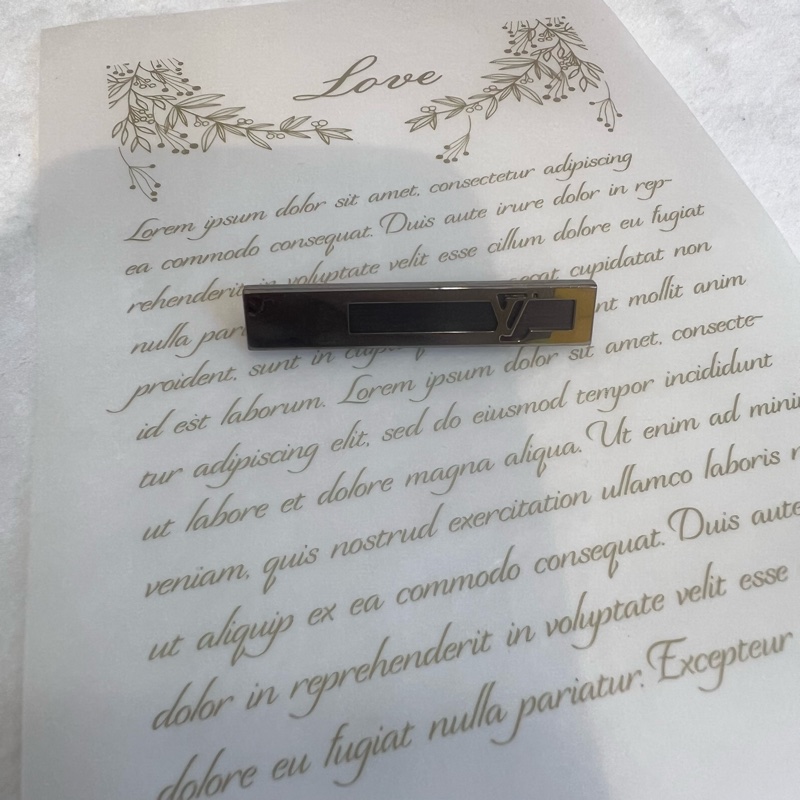 Love
Lorem ipsum dolor sit amet, consectetur adipiscing
ea commodo consequat. Duis aute irure dolor in rep-
rehenderit in voluptate velit esse cillum dolore eu fugiat
nulla cupidatat non
proident, sunt in mollit anim
id est laborum. Lorem ipsum dolor sit amet, consecte-
tur adipiscing elit, sed do eiusmod tempor incididunt
ut labore et dolore magna aliqua. Ut enim ad
veniam, quis nostrud exercitation ullamco laboris
ut aliquip ex ea commodo consequat. Duis aute
dolor in reprehenderit in voluptate velit esse
dolore eu fugiat nulla pariatur. Excepteur
LV